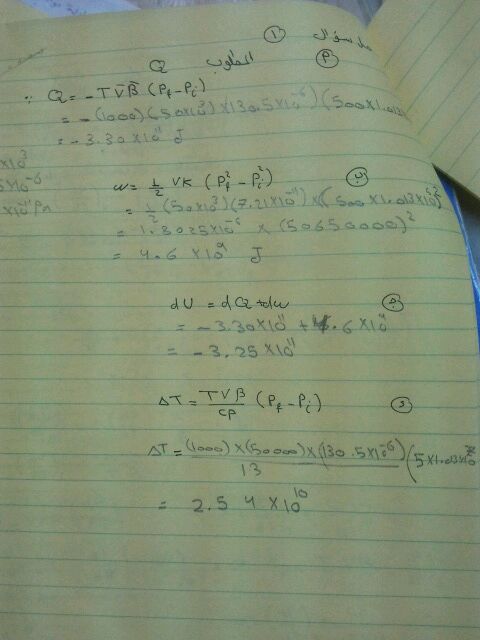 سؤال ①
المطلوب Q
∵ Q = -T V̄ β̄ (Pf - Pi)
= -(1000)(50×10³)×130.5×10⁻⁶)(500×1.013
= -3.30×10¹¹ J
w = 1/2 VK (Pf² - Pi²)
= 1/2 (50×10³)(7.21×10⁻¹¹)×(500×1.013×10⁵)²
= 1.8025×10⁻⁶ × (50650000)²
= 4.6 ×10⁹ J
dU = dQ + dw
= -3.30×10¹¹ + 4.6×10⁹
= -3.25×10¹¹
ΔT = TVβ/CP (Pf - Pi)
ΔT = (1000)×(50000)×(130.5×10⁻⁶)/13 (5×1.013×10⁷
= 2.54 ×10¹⁰